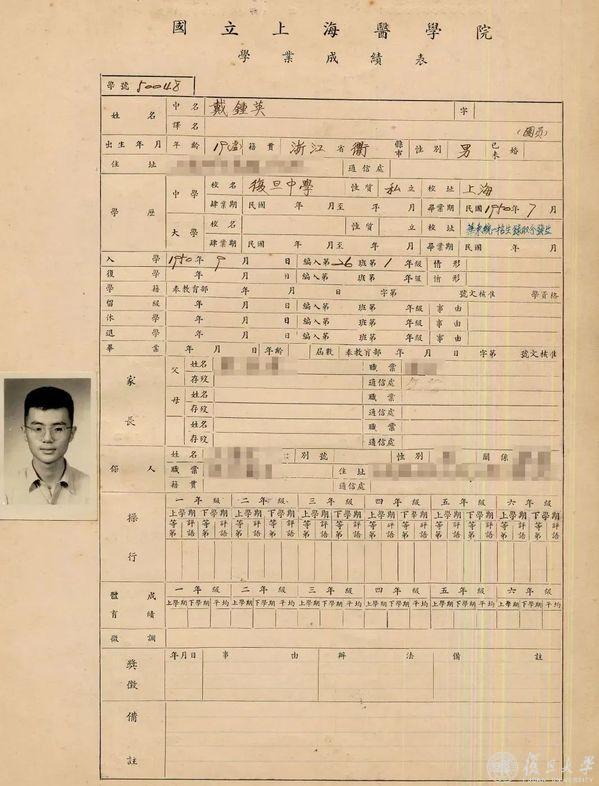 國立上海醫學院
學業成績表
學號 50048
姓名 中名 戴鍾英 字
譯名 (團員)
出生年月 年齡 19 籍貫 浙江省衢縣市 性別 男 已未婚
住址 通信處
學歷 中學 校名 復旦中學 性質 私立 校址 上海
肄業期 民國 年 月至 年 月 畢業期 民國1950年7月
大學 校名 性質 立 校址
肄業期 民國 年 月至 年 月 畢業期 民國 年 月
入學 1950年9月 日 編入第26班第1年級 情形
復學 年 月 日 編入第 班第 年級 情形
學籍 奉教育部 年 月 日 字第 號文核准 學員格
留級 年 月 日 編入第 班第 年級 事由
休學 年 月 日 編入第 班第 年級 事由
退學 年 月 日 編入第 班第 年級 事由
畢業 年 月 日 年齡 屆數 奉教育部 年 月 日 字第 號文核准
家長 父 姓名 職業
存歿 通信處
母 姓名 職業
存歿 通信處
姓名 職業
存歿 通信處
保人 姓名 別號 性別 關係
職業 住址
籍貫 通信處
操行 一年級 二年級 三年級 四年級 五年級 六年級
上學期 下學期 上學期 下學期 上學期 下學期 上學期 下學期 上學期 下學期 上學期 下學期
等第 評語 等第 評語 等第 評語 等第 評語 等第 評語 等第 評語 等第 評語 等第 評語 等第 評語 等第 評語 等第 評語 等第 評語
體育成績 一年級 二年級 三年級 四年級 五年級 六年級
上學期 下學期 平均 上學期 下學期 平均 上學期 下學期 平均 上學期 下學期 平均 上學期 下學期 平均 上學期 下學期 平均
獎懲 年月日 事由 辦法 備註
備註
復旦大學